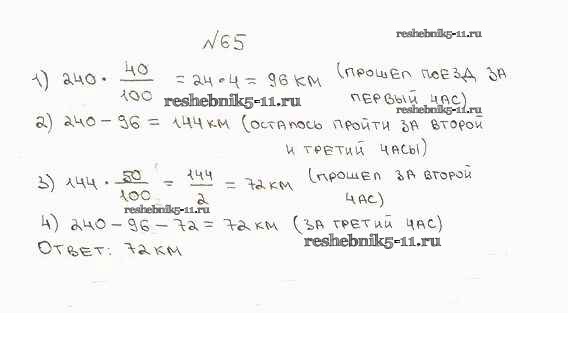 №65
reshebnik5-11.ru
1) 240 · 40/100 = 24·4 = 96 км (прошел поезд за
reshebnik5-11.ru
первый час)
reshebnik5-11.ru
2) 240 – 96 = 144 км (осталось пройти за второй
и третий часы)
3) 144 · 50/100 = 144/2 = 72 км (прошел за второй
час)
reshebnik5-11.ru
4) 240 – 96 – 72 = 72 км (за третий час)
reshebnik5-11.ru
Ответ: 72 км